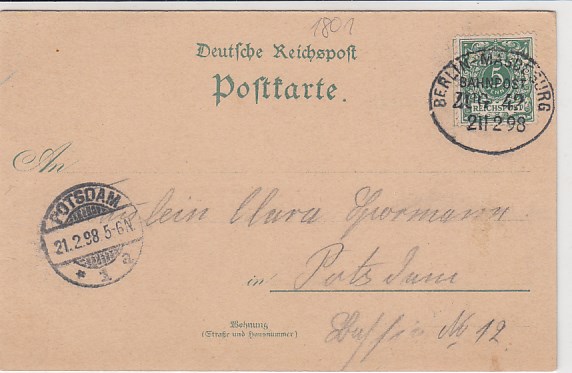 1801
Deutsche Reichspost
Postkarte.
5
REICHSPOST
BERLIN-MAGDEBURG
BAHNPOST
ZUG 42
21 2 98
An
Clara
POTSDAM
21.2.98.5-6N.
* 1 a
in Potsdam
Wohnung
(Straße und Hausnummer)
No 12.